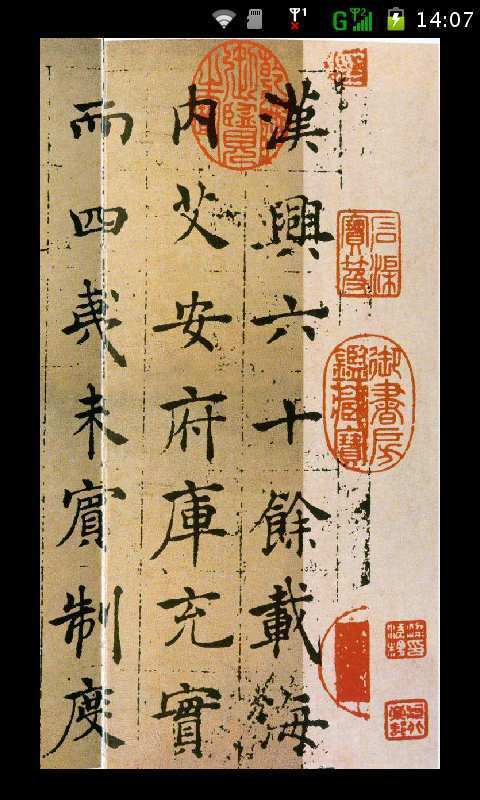 G 14:07
漢興六十餘載海
内艾安府庫充實
而四夷未賓制度
御書房鑑藏寶